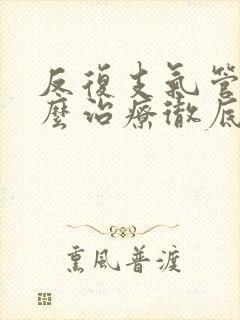 反復支氣管
麼治療徹底
熏風普渡